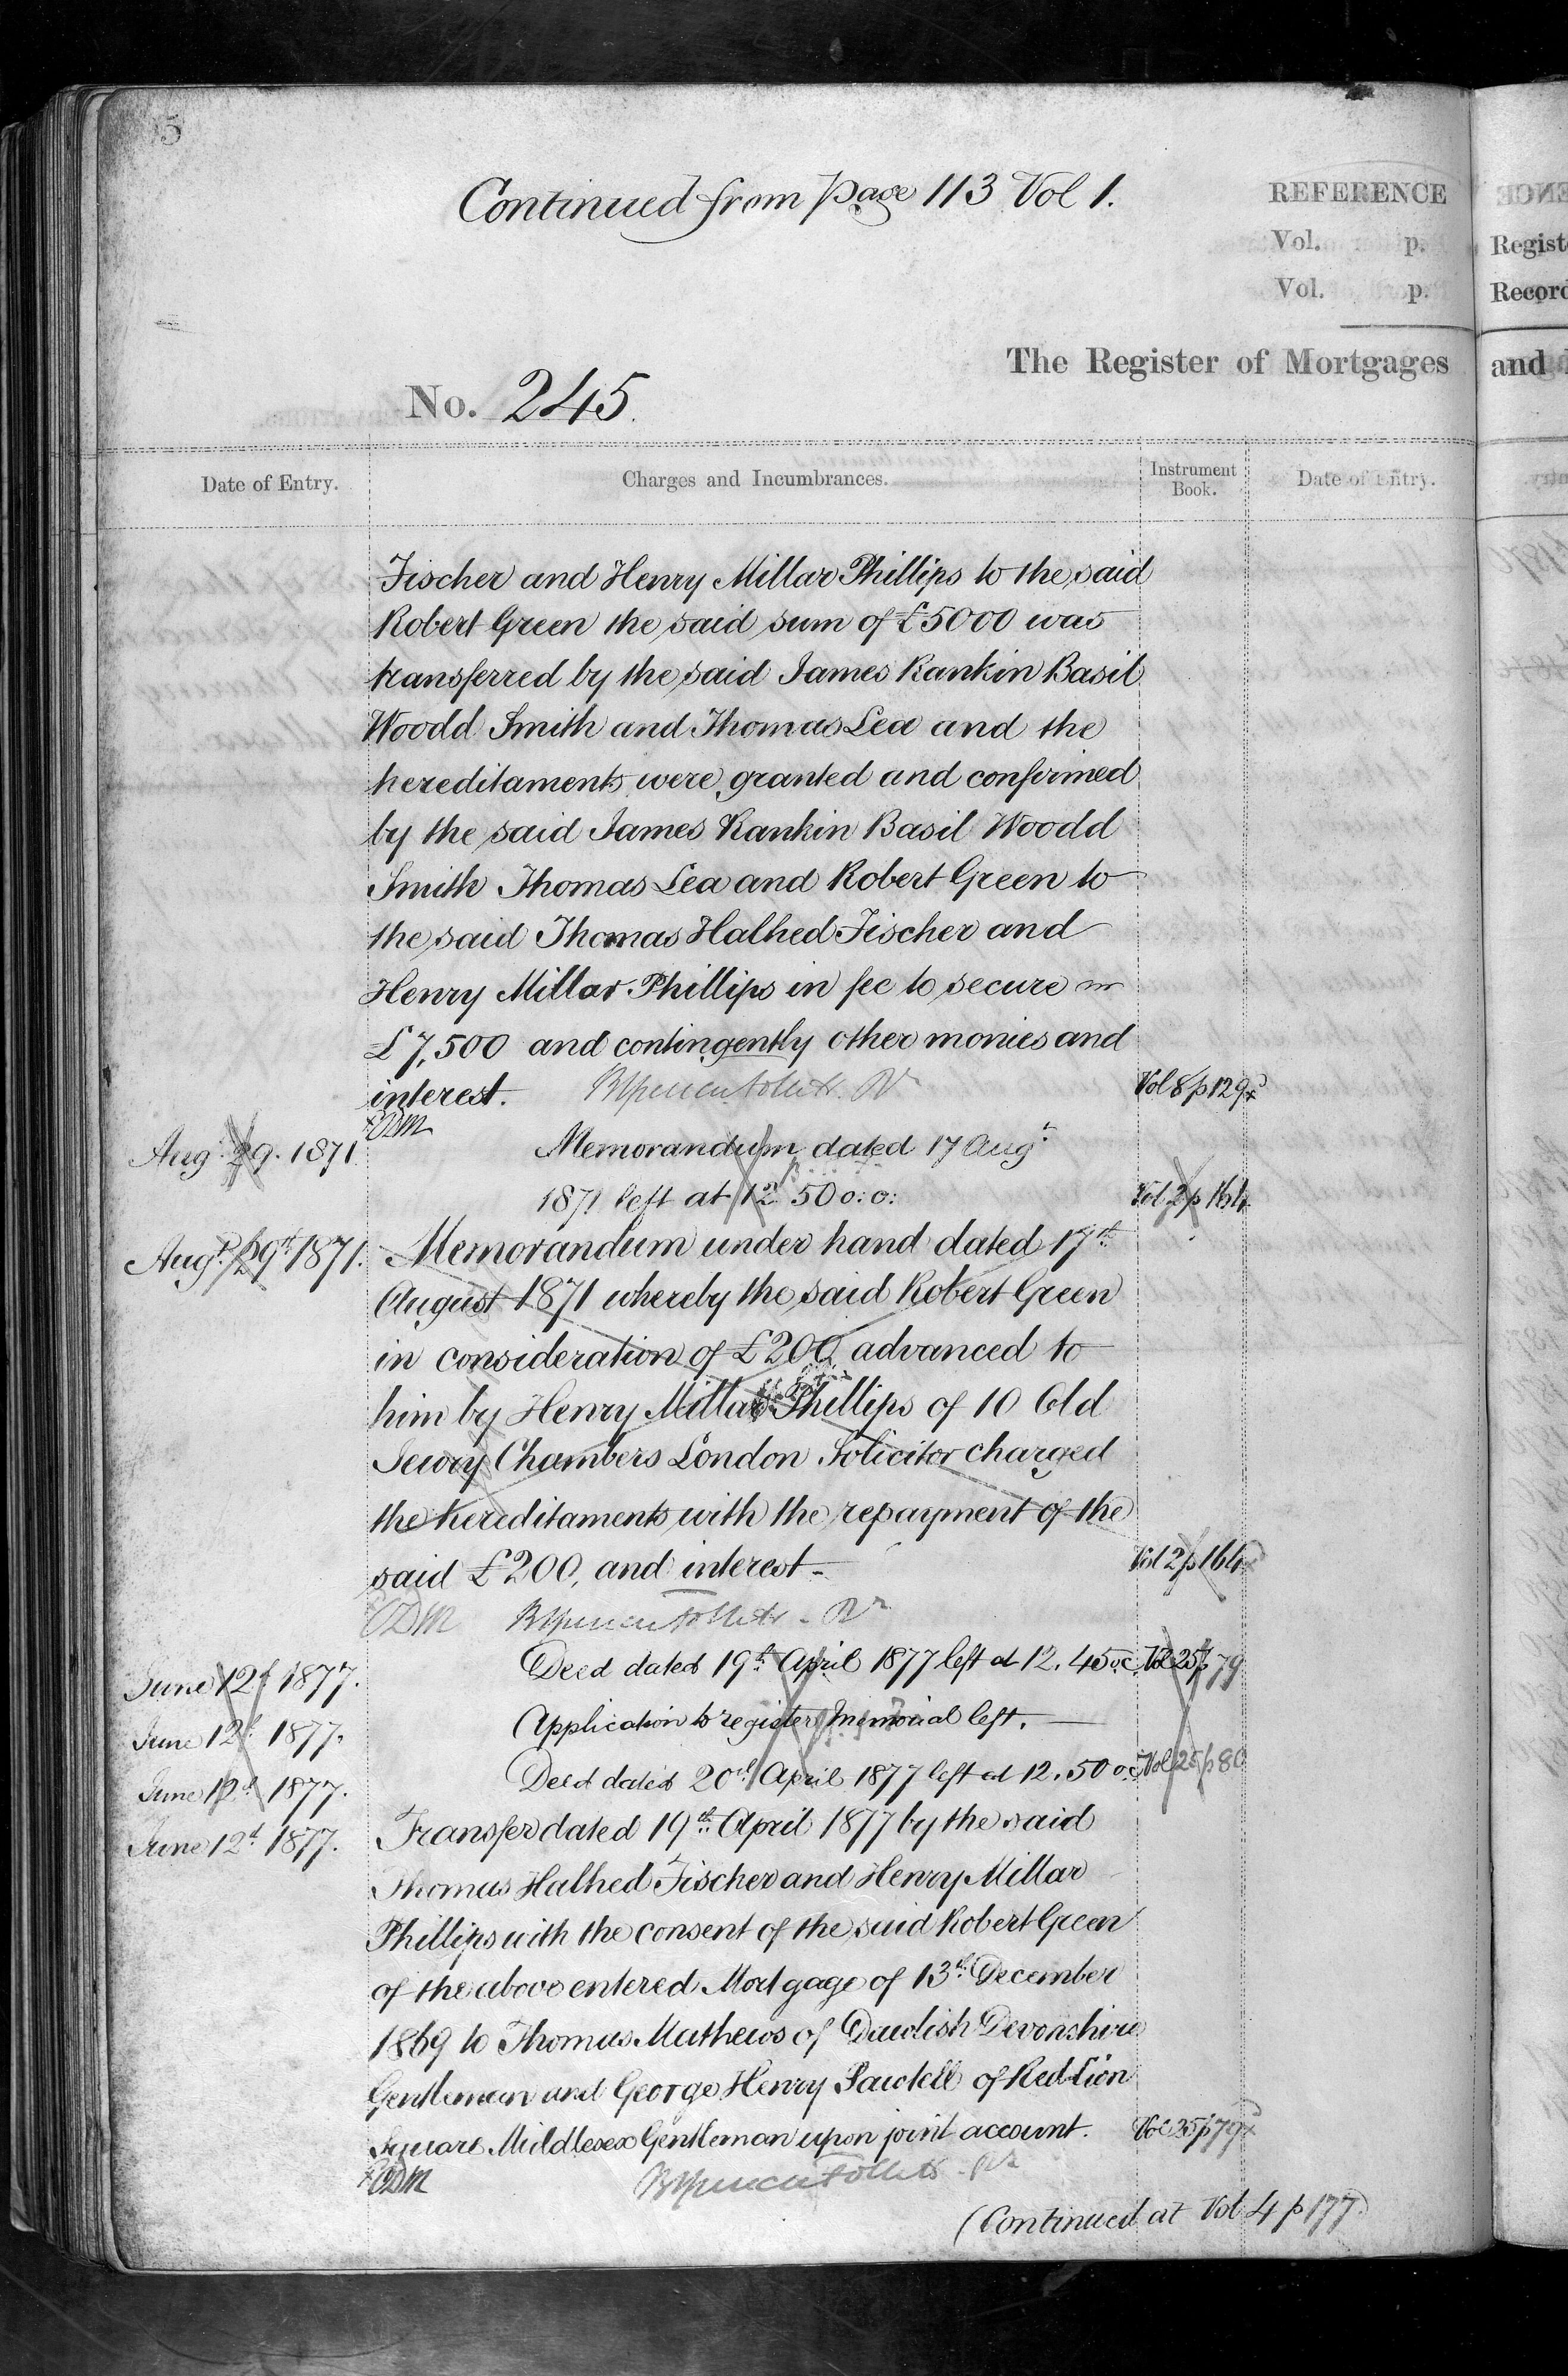 Continued from page 113 Vol 1.
REFERENCE
Vol. p.
Vol. p.
Regist
Record
The Register of Mortgages
and
No. 245.
Date of Entry.
Charges and Incumbrances.
Instrument Book.
Date of Entry.
Fischer and Henry Millar Phillips to the said
Robert Green the said sum of £5000 was
transferred by the said James Rankin Basil
Woodd Smith and Thomas Lea and the
hereditaments were granted and confirmed
by the said James Rankin Basil Woodd
Smith Thomas Lea and Robert Green to
the said Thomas Halhed Fischer and
Henry Millar Phillips in fee to secure
£7,500 and contingently other monies and
interest. Vol 8 p 129
Aug. 29. 1871. Memorandum dated 17 Augt
1871 left at 12 50 o: c: Vol 2 p 164
Augt. 29th 1871. Memorandum under hand dated 17th
August 1871 whereby the said Robert Green
in consideration of £200 advanced to
him by Henry Millar Phillips of 10 Old
Jewry Chambers London Solicitor charged
the hereditaments with the repayment of the
said £200, and interest - Vol 2 p 164
June 12th 1877. Deed dated 19th April 1877 left at 12.45 o.c. Vol 25 p 79
June 12th 1877. Application to register Memorial left.
June 12th 1877. Deed dated 20th April 1877 left at 12.50 o.c. Vol 25 p 80
June 12th 1877. Transfer dated 19th April 1877 by the said
Thomas Halhed Fischer and Henry Millar
Phillips with the consent of the said Robert Green
of the above entered Mortgage of 13th December
1869 to Thomas Mathews of Dawlish Devonshire
Gentleman and George Henry Sawtell of Red Lion
Square Middlesex Gentleman upon joint account. Vol 25 p 79
(Continued at Vol 4 p 177)